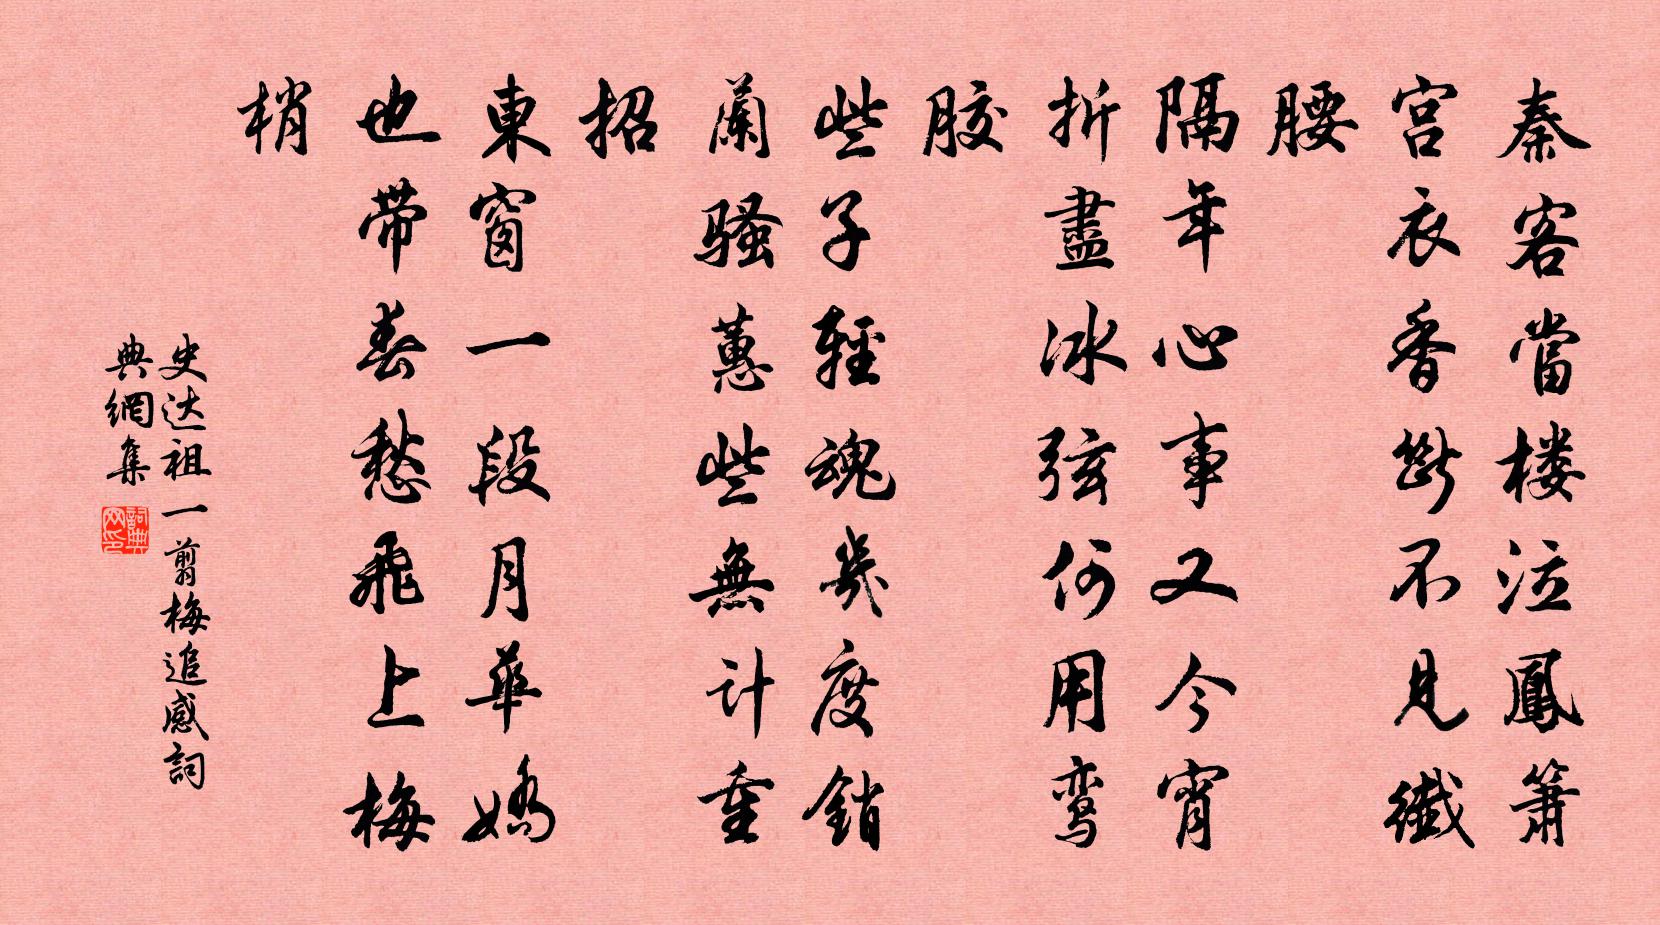 秦客當楼泣鳳箫
宫衣香斷不見纖
腰
隔年心事又今宵
折盡冰弦何用鸾
胶
些子輕魂幾度銷
蘭骚蕙些無计重
招
東窗一段月華嬌
也带春愁飛上梅
梢
史达祖一剪梅追感詞
典網集
詞典
网印